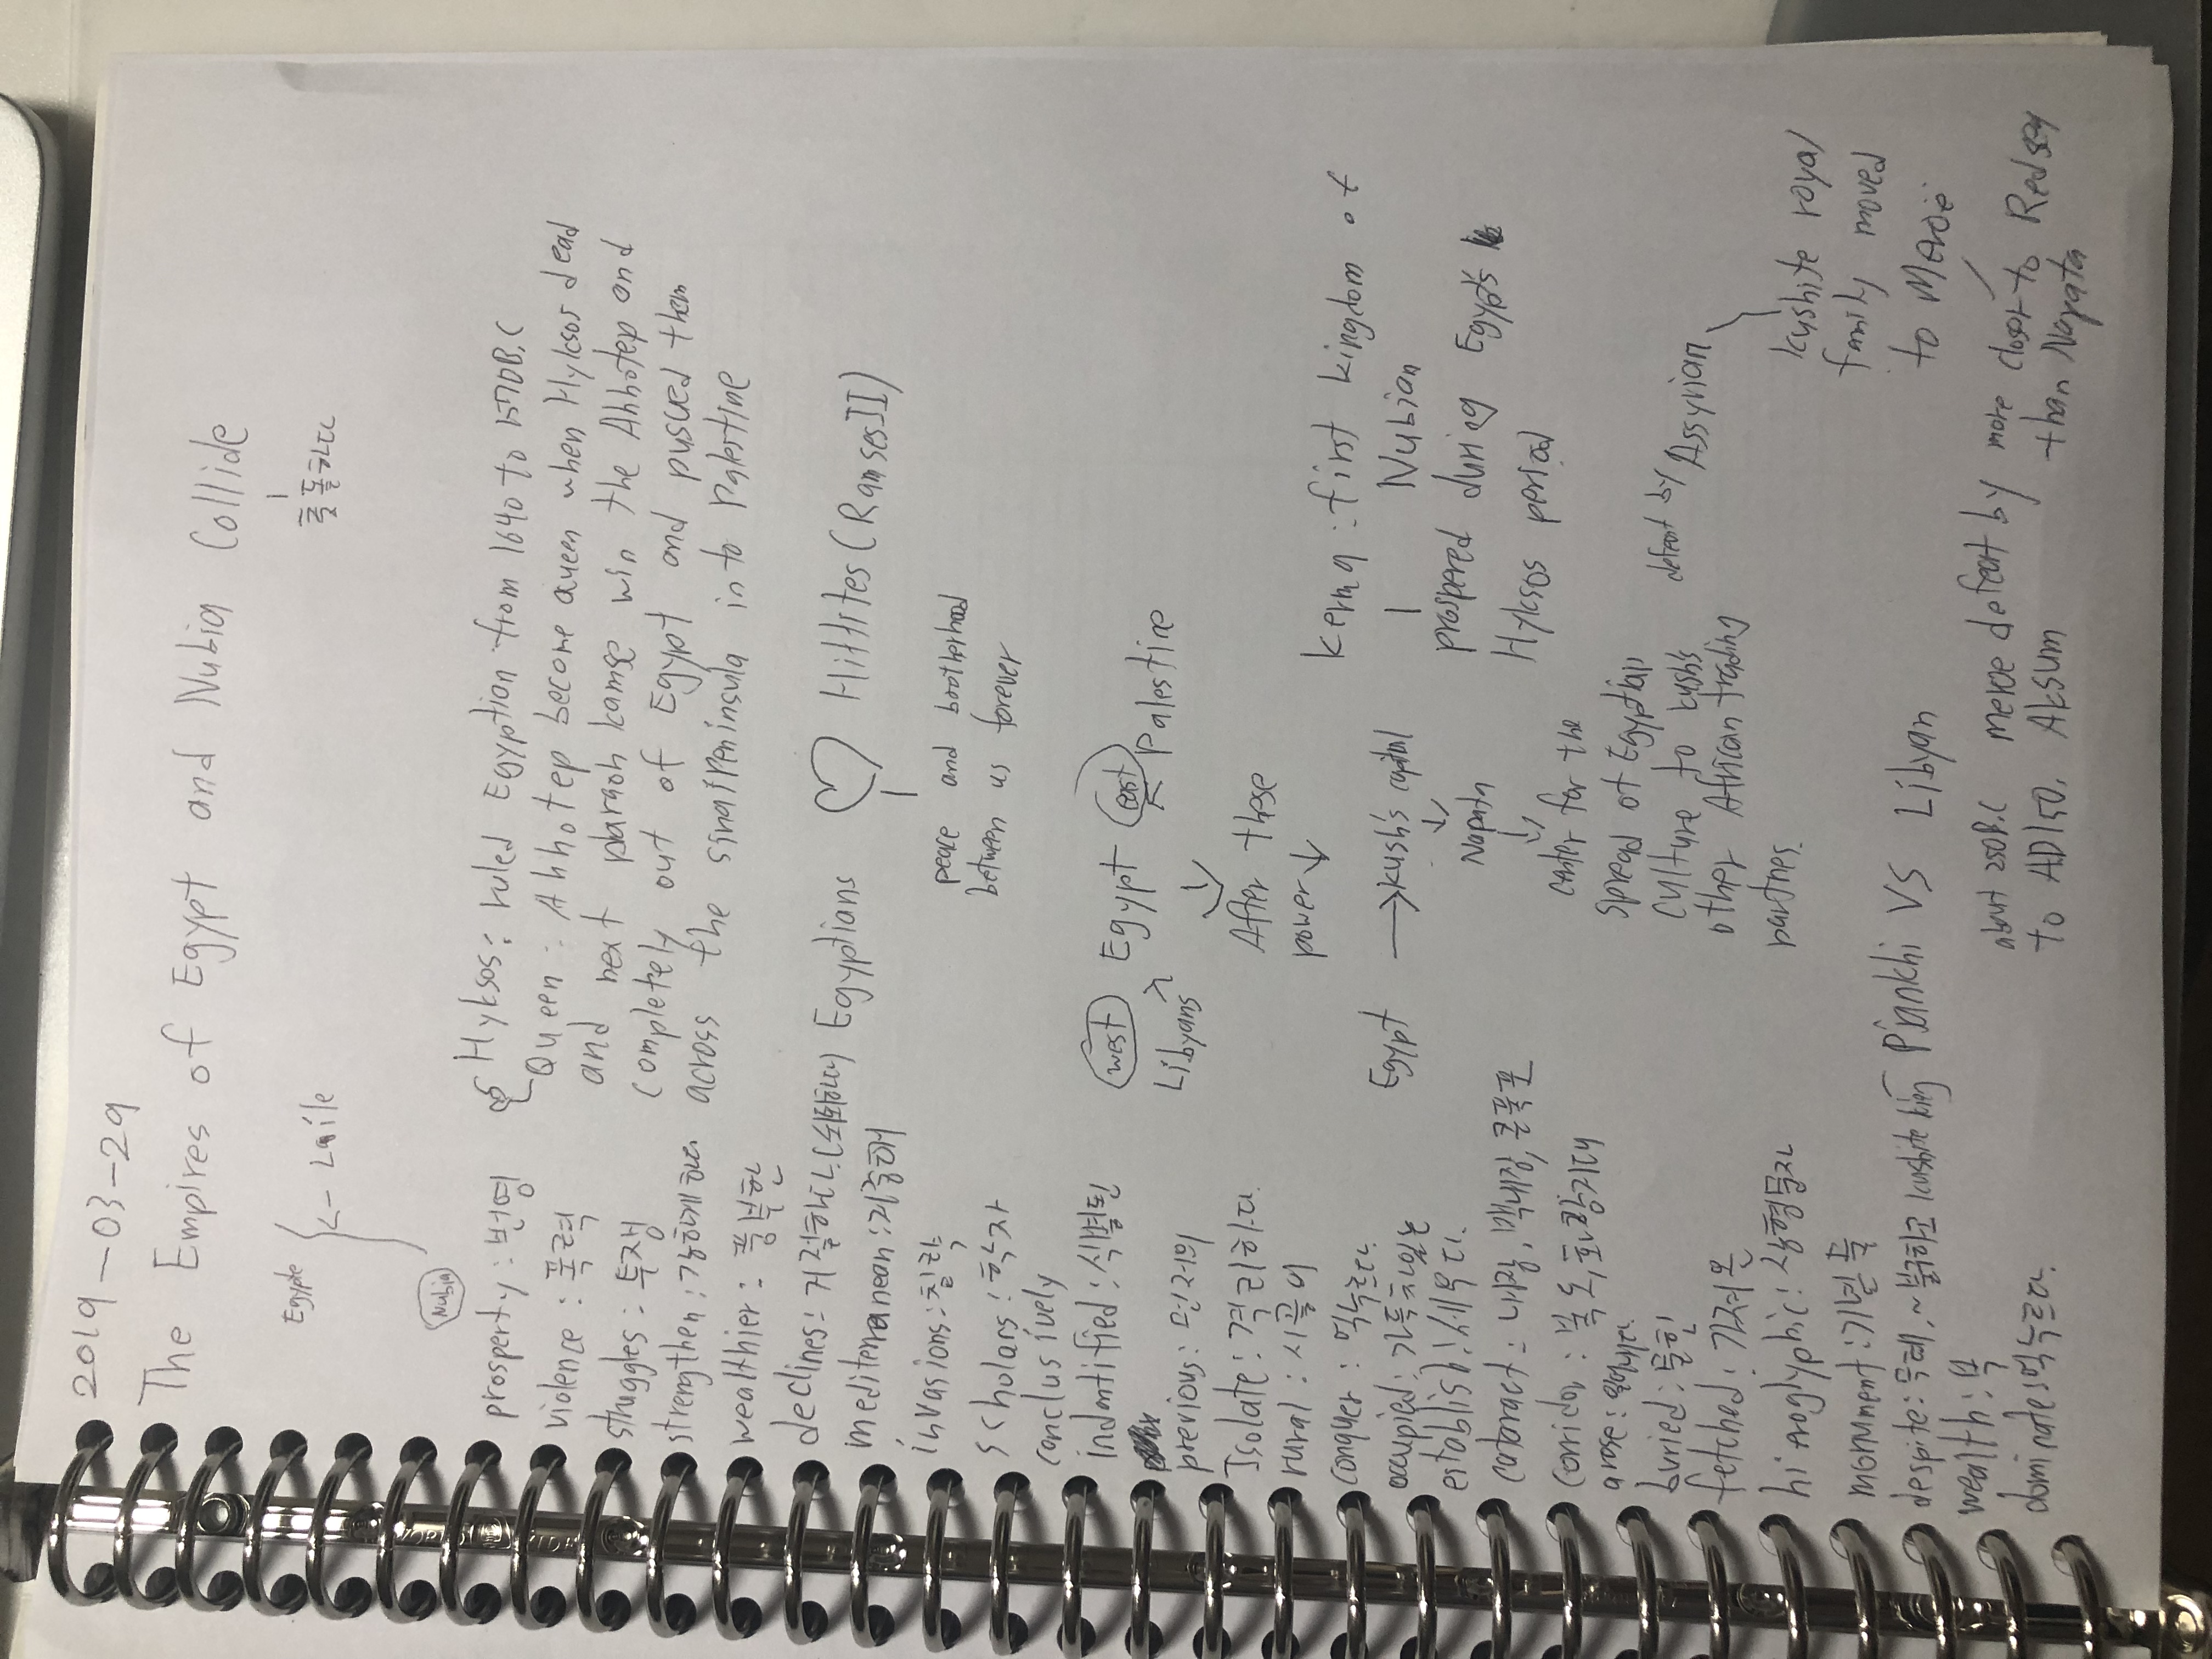 2019-03-29
The Empires of Egypt and Nubia Collide
충돌하다
Egypte
<- Laile
Nubia
prosperty :번영
violence : 폭력
struggles : 투쟁
strengthen : 강하게하다
wealthier : 풍부한
declines : 거절하다.(쇠퇴하다)
mediterranean : 지중해
invasions : 침략
scholars : 학자
conclusively
indantified : 식별된
previous : 이전의
Isolate : 격리하다.
rural : 시골의
conquer : 억누르다.
occupied : 가득차있는
establish : 세우다.
cataract : 나팔, 백내장, 큰폭포
corridor : 복도, 회랑지대
arose : 일어나다.
buried : 묻힌
fetched : 가져온
hieroglyphic : 상형문자
monument : 기념물
despite : 무례, ~불하고
wealth : 부
dominates 억누르다.
Hyksos : ruled Egyption from 1640 to 1570B.C
Queen : Ahhotep become queen when Hyksos dead
and next pharaoh kamse win the Ahhotep and
completely out of Egypt and pusued them
across the sinai Peninsula into Palestine
Egyptians ♡ Hittites (Ramses II)
peace and brotherhood
between us forever
west Egypt east
Libyans Palestine
After these
power ↓
Egypt → kush's capital
Napata
center for the
spread of Egyptian
culture to kush's
other African trading
partnes.
kerma : first kingdom of
Nubian
prospered during Egypt's
Hyksos period
defeat by Assyrian
kushite royal
family moved
to Meroë
kushite king Piankhi VS Libyan
about 250B.C meroe defeat by more closer to Red sea
to AD150. Aksum than Napata